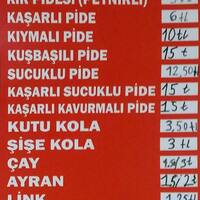 KIR PİDESİ (PEYNİRLİ)
KAŞARLI PİDE 6 tl
KIYMALI PİDE 10 tl
KUŞBAŞILI PİDE 15 tl
SUCUKLU PİDE 12,50 tl
KAŞARLI SUCUKLU PİDE 15 tl
KAŞARLI KAVURMALI PİDE 15 tl
KUTU KOLA 3,50 tl
ŞİŞE KOLA 3 tl
ÇAY
AYRAN
LİNK 1,25 tl